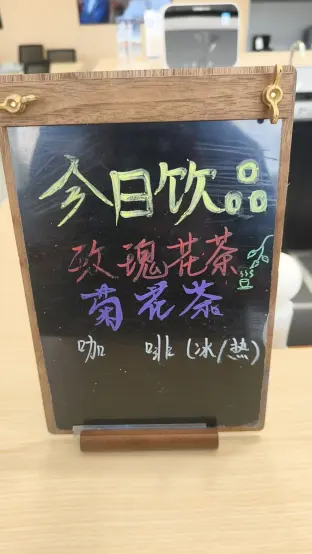 今日饮品
玫瑰花茶
菊花茶
咖 啡(冰/热)